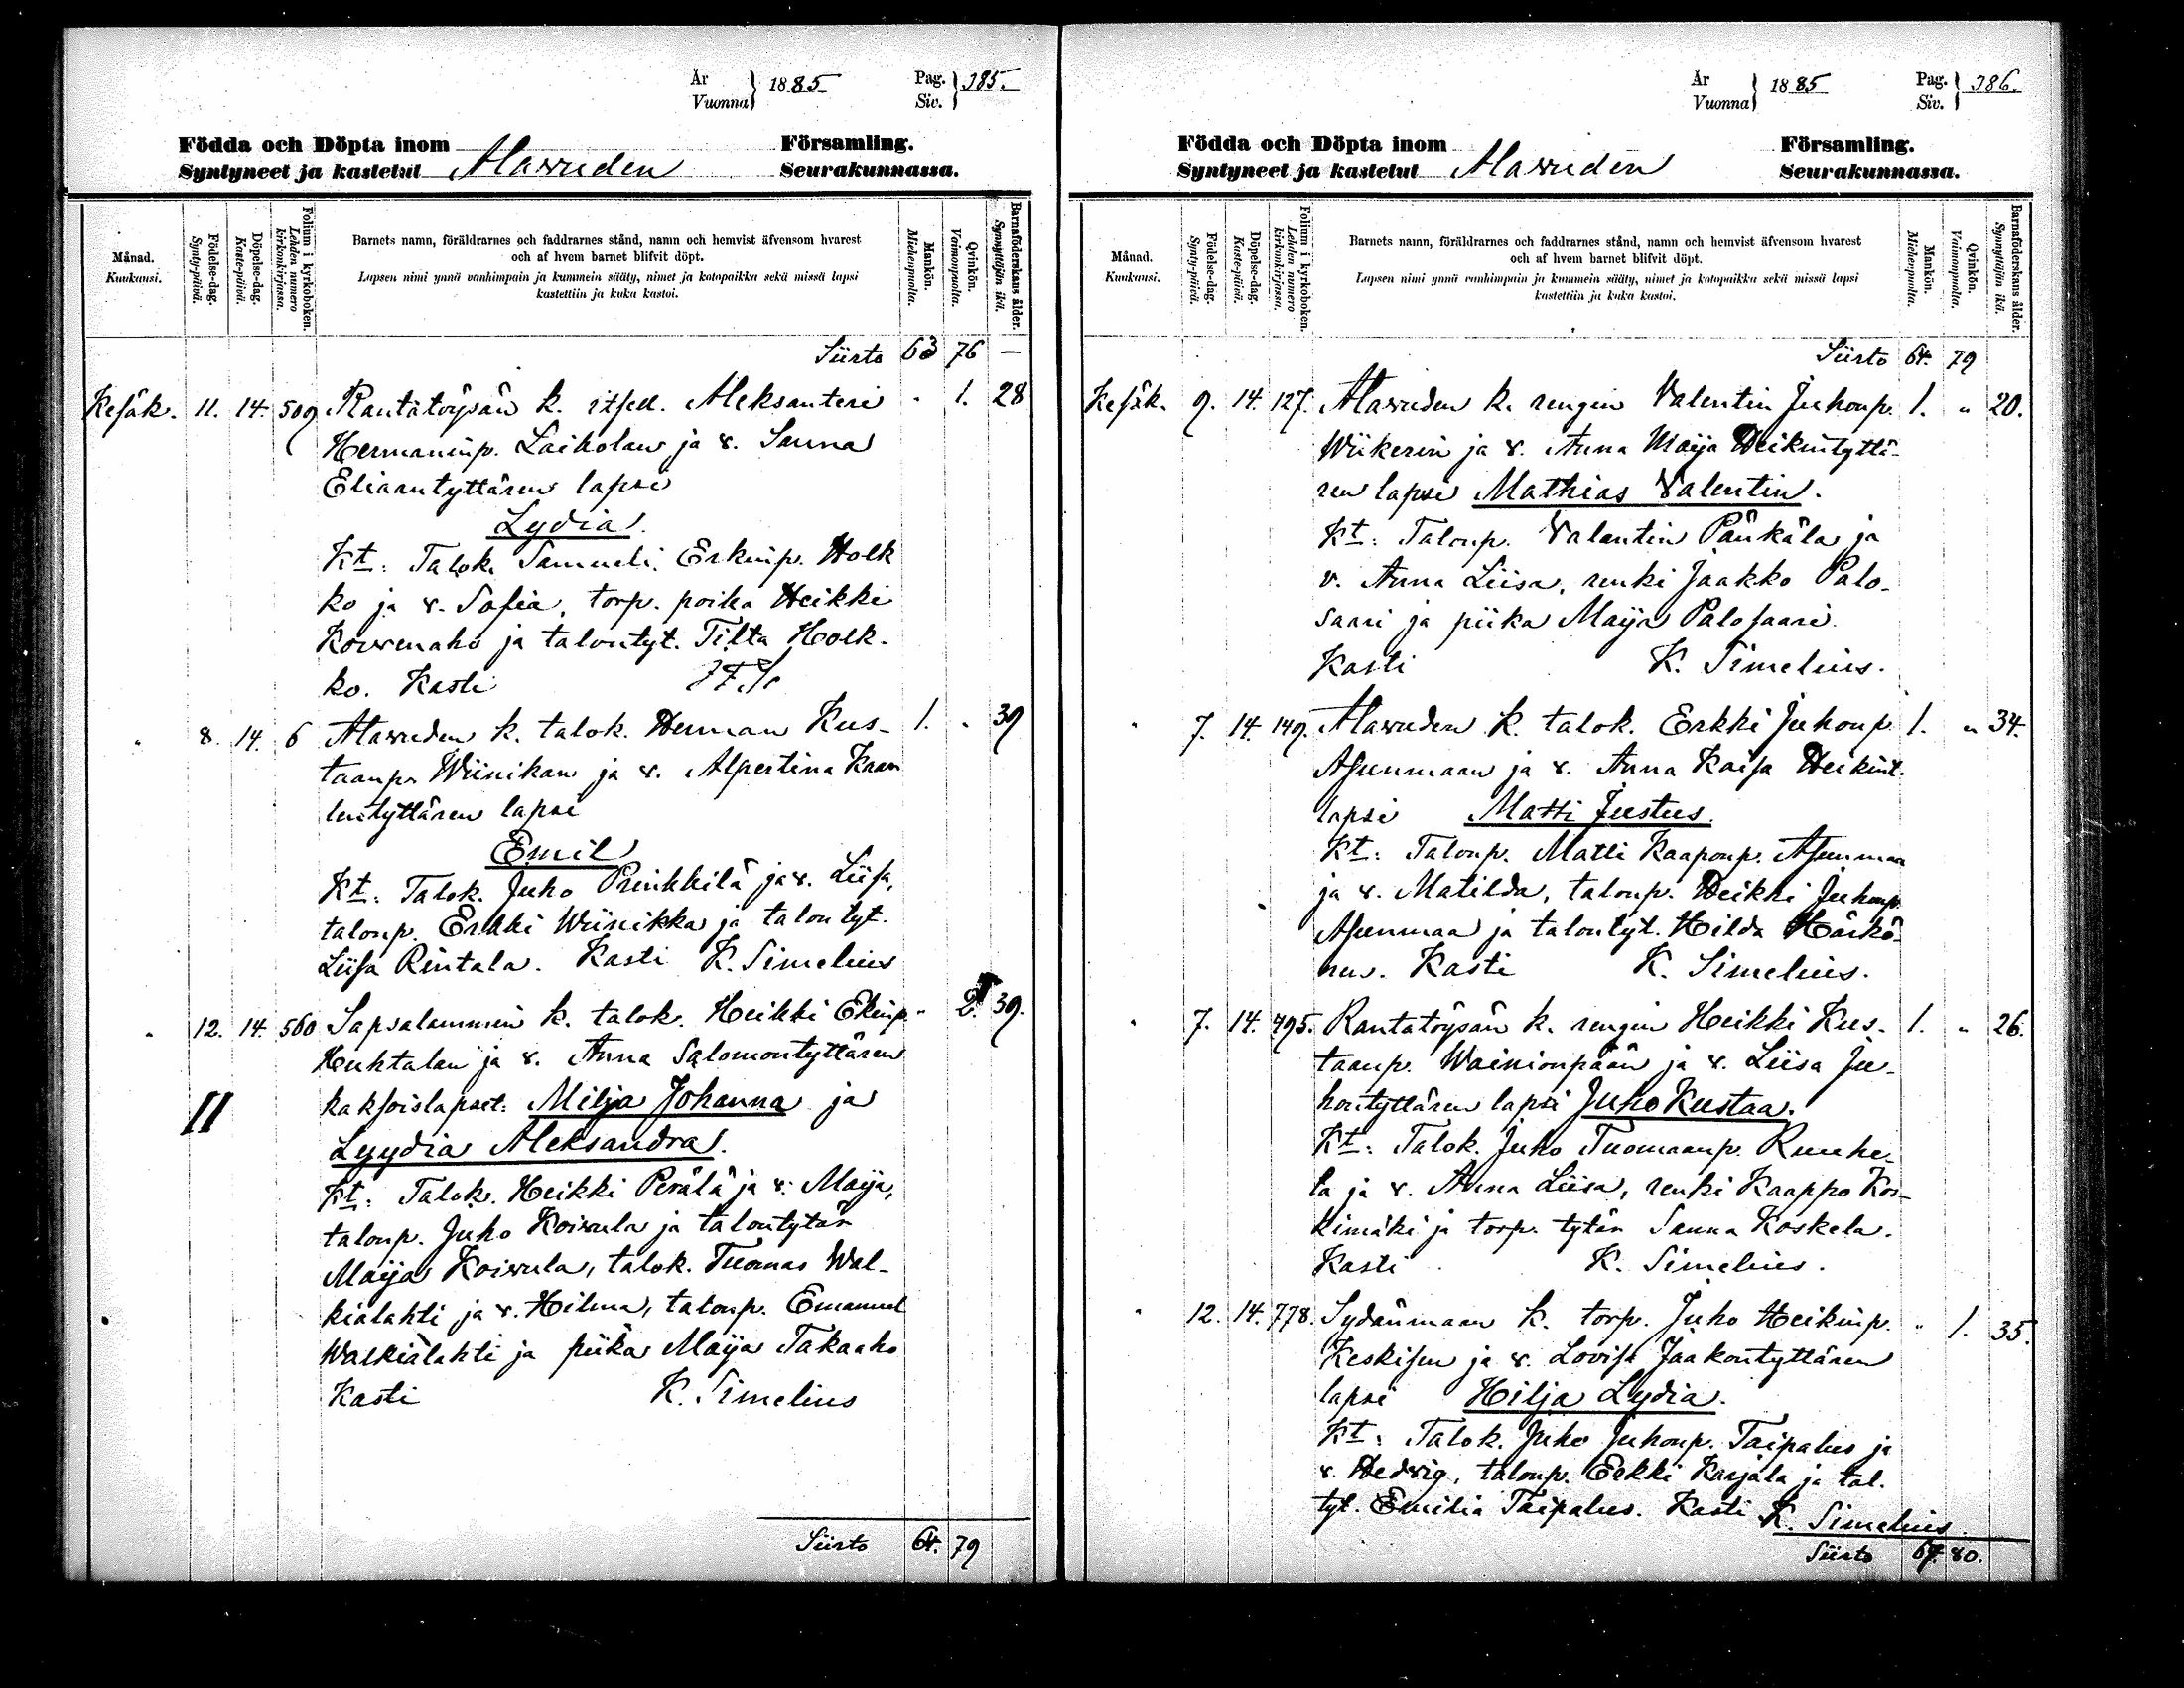 År
Vuonna } 1885 Pag.
Siv. } 385.
Födda och Döpta inom Församling.
Syntyneet ja kastetut Alavuden Seurakunnassa.
Månad.
Kuukausi.
Födelse-dag.
Synty-päivä.
Döpelse-dag.
Kaste-päivä.
Folium i kyrkoboken.
Lehden numero
kirkonkirjassa.
Barnets namn, föräldrarnes och faddrarnes stånd, namn och hemvist äfvensom hvarest
och af hvem barnet blifvit döpt.
Lapsen nimi ynnä vanhimpain ja kummein sääty, nimet ja kotopaikka sekä missä lapsi
kastettiin ja kuka kastoi.
Mankön.
Miehenpuolta.
Qvinkön.
Vaimonpuolta.
Barnaföderskans ålder.
Synnyttäjän ikä.
Siirto 63 76 —
Kesäk. 11. 14. 509 Rantatöysän k. itsell. Aleksanteri " 1. 28
Hermaninp. Laiholan ja v. Sanna
Eliaantyttären lapsi
Lydia.
Kt: Talok. Samueli Erkinp. Holk
ko ja v. Sofia, torp. poika Heikki
Kovvenaho ja talontyt. Tilta Holk-
ko. Kasti
" 8. 14. 6 Alavuden k. talok. Herman Kus- 1. " 39
taanp. Wiinikan ja v. Alpertina Kaar
lentyttären lapsi
Emil
Kt: Talok. Juho Prinkkilä ja v. Liisa,
talonp. Erkki Wiinikka ja talontyt.
Liisa Rintala. Kasti K. Simelius
" 12. 14. 560 Sapsalammin k. talok. Heikki Erkinp. " 2. 39.
Huhtalan ja v. Anna Salomontyttären
II kaksoislapset: Milja Johanna ja
Lyydia Aleksandra.
Kt: Talok. Heikki Perälä ja v. Maija,
talonp. Juho Koivula ja talontytär
Maija Koivula, talok. Tuomas Wal-
kialahti ja v. Hilma, talonp. Emanuel
Walkialahti ja piika Maija Takaaho
Kasti K. Simelius
Siirto 64. 79
År
Vuonna } 1885 Pag.
Siv. } 386.
Födda och Döpta inom Församling.
Syntyneet ja kastetut Alavuden Seurakunnassa.
Månad.
Kuukausi.
Födelse-dag.
Synty-päivä.
Döpelse-dag.
Kaste-päivä.
Folium i kyrkoboken.
Lehden numero
kirkonkirjassa.
Barnets namn, föräldrarnes och faddrarnes stånd, namn och hemvist äfvensom hvarest
och af hvem barnet blifvit döpt.
Lapsen nimi ynnä vanhimpain ja kummein sääty, nimet ja kotopaikka sekä missä lapsi
kastettiin ja kuka kastoi.
Mankön.
Miehenpuolta.
Qvinkön.
Vaimonpuolta.
Barnaföderskans ålder.
Synnyttäjän ikä.
Siirto 64. 79
Kesäk. 9. 14. 127. Alavuden k. rengin Valentin Juhonp. 1. " 20.
Wiikerin ja v. Anna Maija Heikintyttä-
ren lapsi Mathias Valentin.
Kt: Talonp. Valentin Pänkälä ja
v. Anna Liisa, renki Jaakko Palo-
saari ja piika Maija Palosaari.
Kasti K. Simelius.
" 7. 14. 149. Alavuden k. talok. Erkki Juhonp. 1. " 34.
Asunmaan ja v. Anna Kaisa Heikint.
lapsi Matti Justus.
Kt: Talonp. Matti Kaaponp. Asunmaa
ja v. Matilda, talonp. Heikki Juhonp.
Asunmaa ja talontyt. Hilda Härkö-
nen. Kasti K. Simelius.
" 7. 14. 495. Rantatöysän k. rengin Heikki Kus- 1. " 26.
taanp. Wainionpään ja v. Liisa Ju-
hontyttären lapsi Juho Kustaa.
Kt: Talok. Juho Tuomaanp. Ruuhe-
la ja v. Anna Liisa, renki Kaappo Kos-
kimäki ja torp. tytär Sanna Koskela.
Kasti K. Simelius.
" 12. 14. 778. Sydänmaan k. torp. Juho Heikinp. " 1. 35.
Keskisen ja v. Lovisa Jaakontyttären
lapsi Hilja Lydia.
Kt: Talok. Juho Juhonp. Taipalus ja
v. Hedvig, talonp. Erkki Karjala ja tal.
tyt. Emilia Taipalus. Kasti K. Simelius.
Siirto 67. 80.